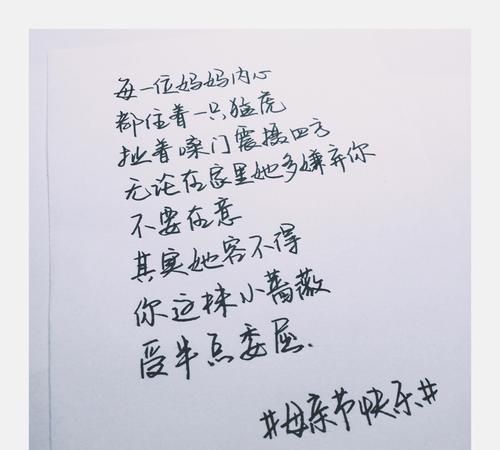 每一位妈妈内心
都住着一只猛虎
扯着嗓门震摄四方
无论在家里她多嫌弃你
不要在意
其实她容不得
你这株小蔷薇
受半点委屈.
#母亲节快乐#